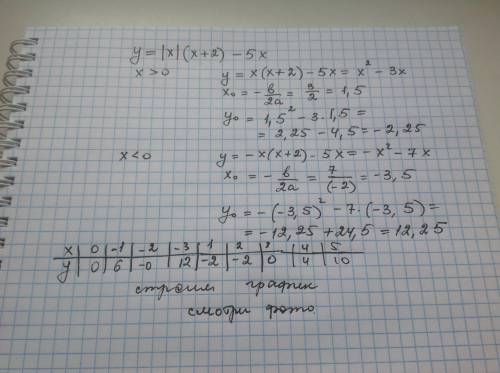 y = |x| (x+2) - 5x
x > 0 y = x(x+2) - 5x = x² - 3x
x₀ = - b/2a = 3/2 = 1,5
y₀ = 1,5² - 3·1,5 =
= 2,25 - 4,5 = -2,25
x < 0 y = -x(x+2) - 5x = -x² - 7x
x₀ = - b/2a = 7/(-2) = -3,5
y₀ = -(-3,5)² - 7·(-3,5) =
= -12,25 + 24,5 = 12,25
x | 0 | -1 | -2 | -3 | 1 | 2 | 4 | 5
y | 0 | 6 | -0 | 12 | -2 | -2 | 0 | 4 | 10
строим график
смотри фото